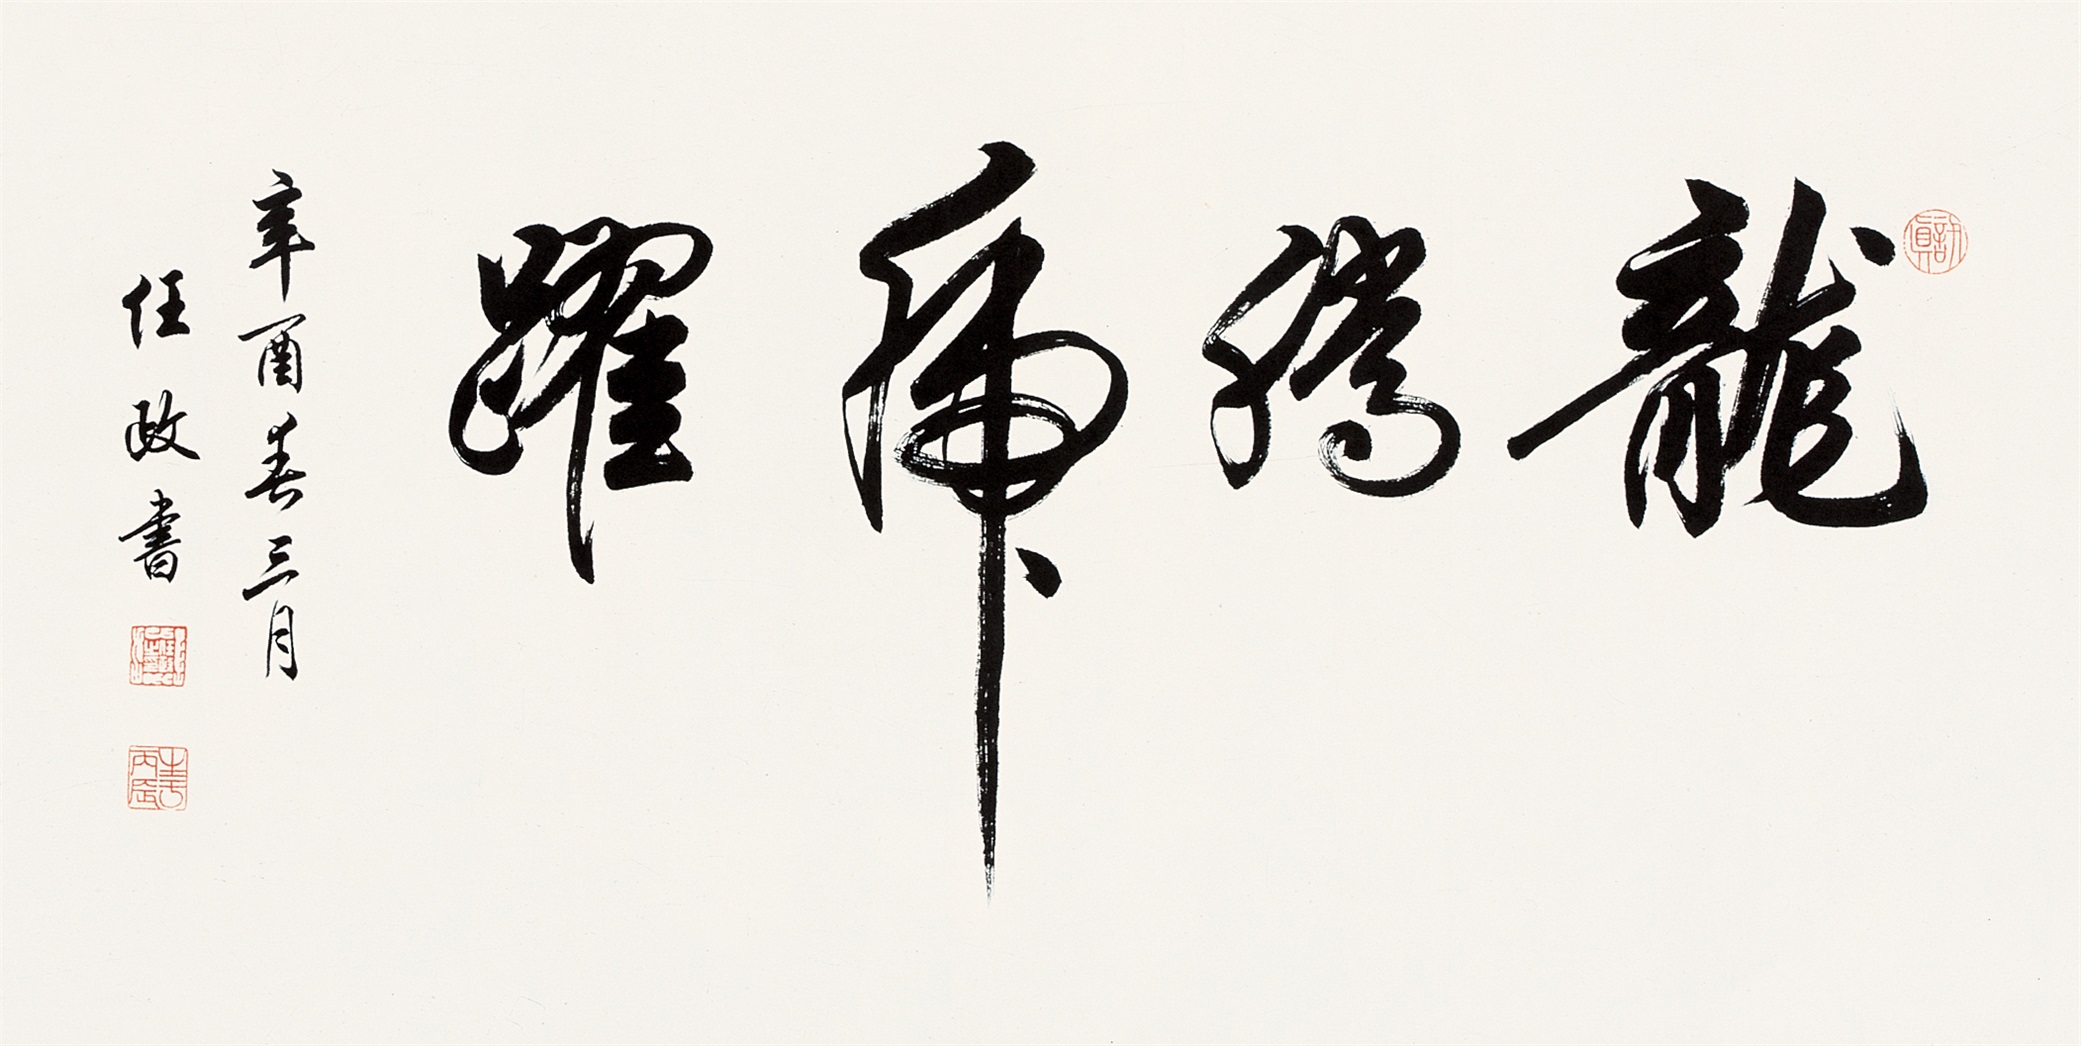 龍騰虎躍
辛酉春三月
任政書